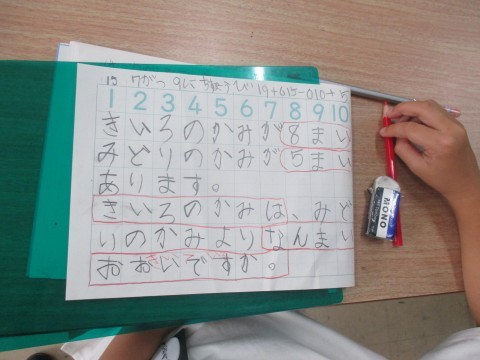 1 2 3 4 5 6 7 8 9 10
きいろのかみが8まい
みどりのかみが5まい
あります。
きいろのかみは、みど
りのかみよりなんまい
おおいですか。
MONO